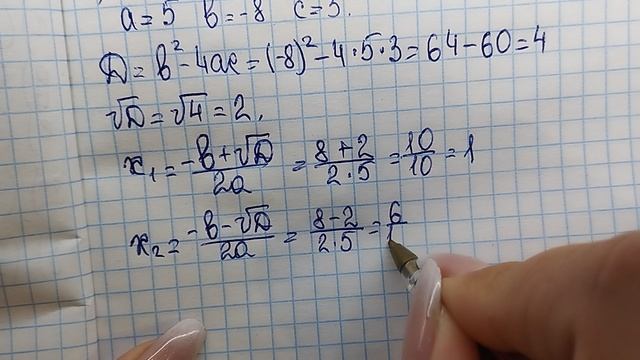 a=5 в=-8 c=3.
D=в²-4ac=(-8)²-4·5·3=64-60=4
√D=√4=2,
x₁=(-в+√D)/(2a)=(8+2)/(2·5)=10/10=1
x₂=(-в-√D)/(2a)=(8-2)/(2·5)=6/